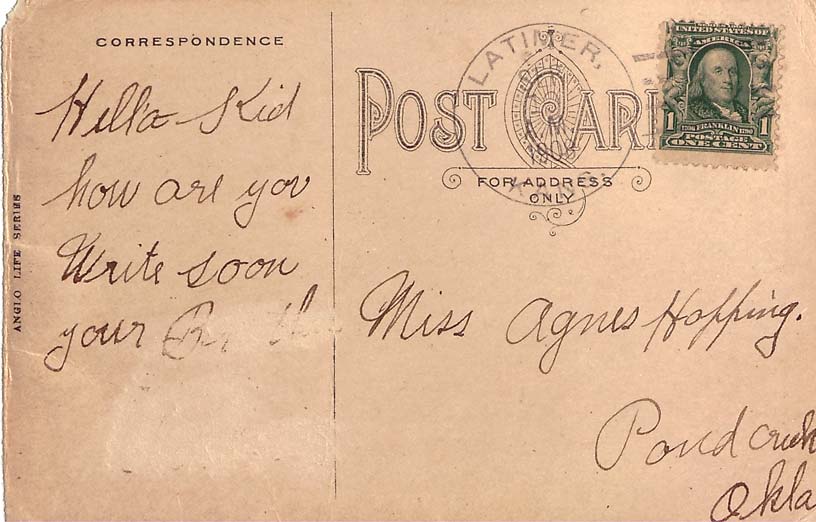 CORRESPONDENCE
Hello Kid
how are you
Write soon
your
ANGLO LIFE SERIES
POST CARD
FOR ADDRESS
ONLY
LATIMER,
1908
KANS.
UNITED STATES OF
AMERICA
1 1
1706 FRANKLIN 1790
POSTAGE
ONE CENT
Miss Agnes Hopping.
Pond creek
Okla